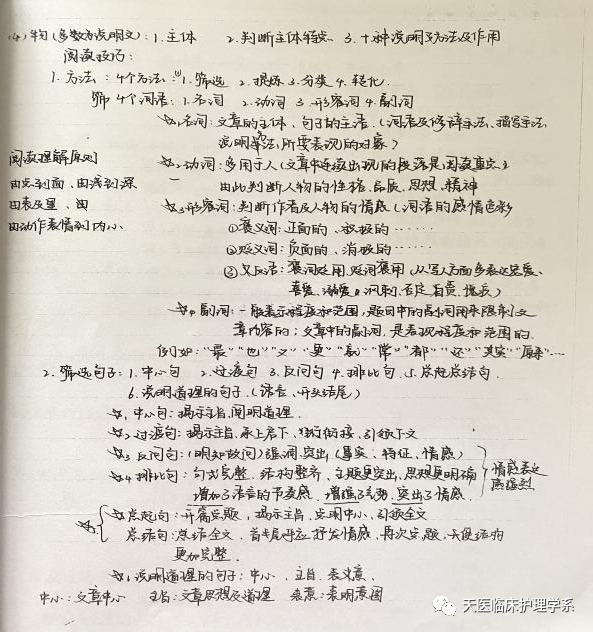 (4) 物(多数为说明文):1.主体 2.判断主体特点 3.十种说明方法及作用
阅读技巧:
1.方法:4个方法:1.筛选 2.提炼 3.分类 4.转化.
筛4个词语:1.名词 2.动词 3.形容词 4.副词
名词:文章的主体、句子的主语.(词者及修辞手法、描写手法
说明手法,所要表现的对象)
阅读理解原则
2.动词:多用于人(文章中连续出现的段落是阅读重点)
由点到面、由浅到深
由此判断人物的性格、品质、思想、精神
由表及里、由
3.形容词:判断作者及人物的情感(词语的感情色彩
由动作表情到内心.
①褒义词:正面的、积极的……
②贬义词:负面的、消极的……
③义反语:褒词贬用、贬词褒用(从写人方面多表达宠爱、
喜爱、溺爱。讽刺、否定自责、愧疚)
4.副词:一般表示程度和范围,题目中的副词用来限制文
章内容的;文章中的副词,是表现程度和范围的.
例如:“最”“也”“又”“更”“高”“常”“都”“还”“其实”“原来”…
2.筛选句子:1.中心句 2.过渡句 3.反问句 4.排比句.5.总起总结句.
6.说明道理的句子.(语言、开头结尾)
1.中心句:揭示主旨,阐明道理.
2.过渡句:揭示主旨、承上启下、引领下文
3.反问句:(明知故问)强调、突出(事实、特征、情感)
4.排比句:句式完整.结构整齐、主题更突出,思想更明确
情感表达
增加了语言的节奏感.增强了气势,突出了情感.
更强烈
总起句:开篇点题,揭示主旨、点明中心、引领全文
总结句:总结全文、首尾呼应、抒发情感、再次点题、使结构
更加完整.
说明道理的句子:中心、主旨、表意.
中心:文章中心 主旨:文章思想及道理 表意:表明意图
天医临床护理学系